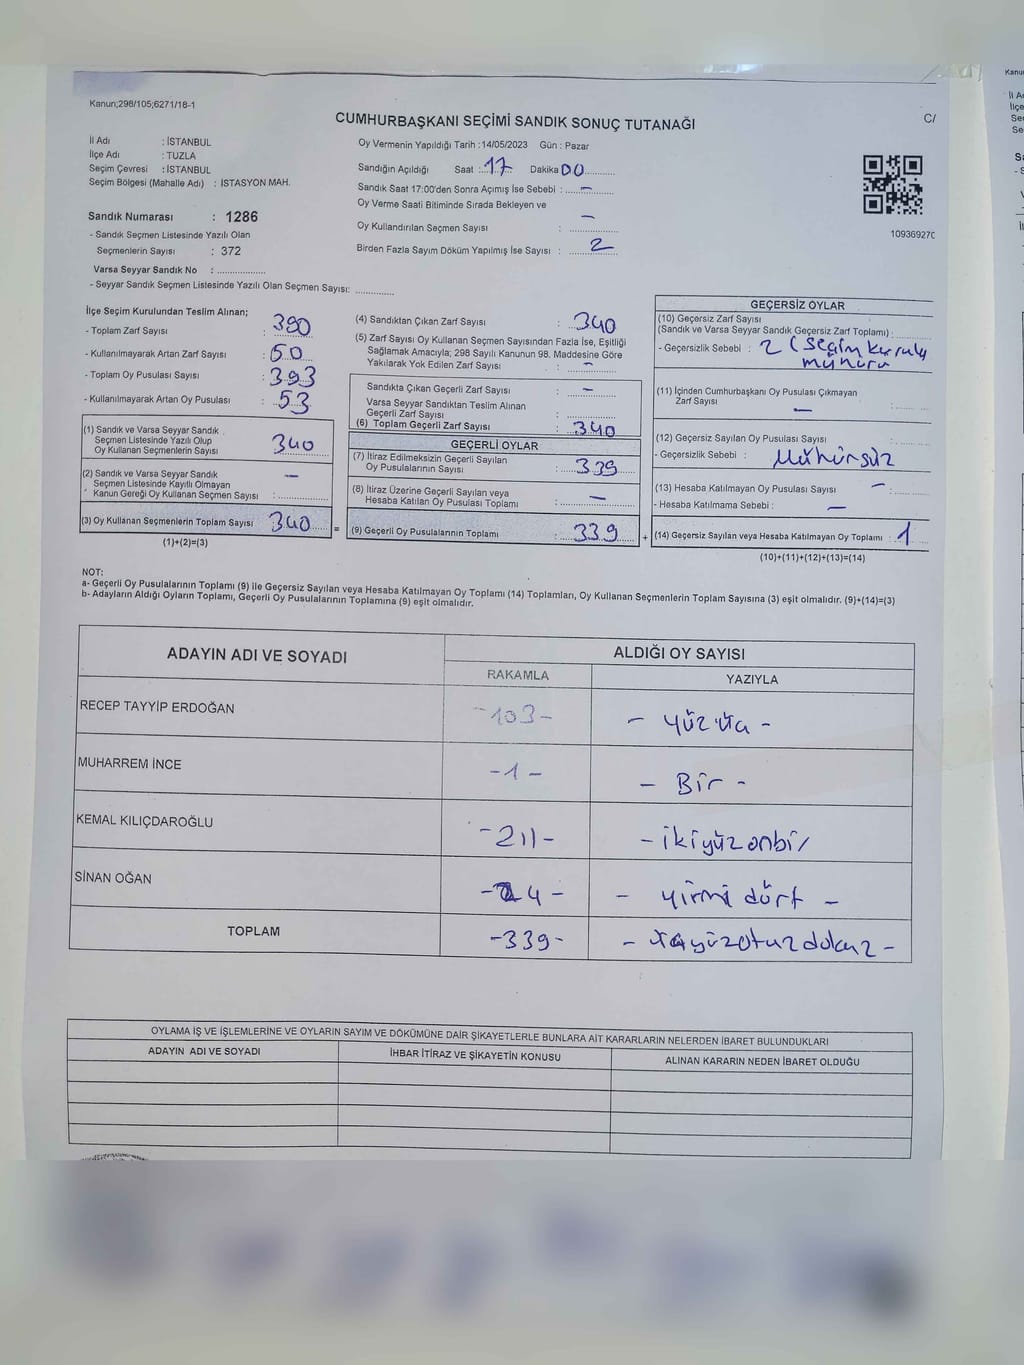 Kanun;298/105;6271/18-1
CUMHURBAŞKANI SEÇİMİ SANDIK SONUÇ TUTANAĞI
C/
İl Adı : İSTANBUL
İlçe Adı : TUZLA
Seçim Çevresi : İSTANBUL
Seçim Bölgesi (Mahalle Adı) : İSTASYON MAH.
Sandık Numarası : 1286
- Sandık Seçmen Listesinde Yazılı Olan
Seçmenlerin Sayısı : 372
Varsa Seyyar Sandık No : ..................
- Seyyar Sandık Seçmen Listesinde Yazılı Olan Seçmen Sayısı: ..............
Oy Vermenin Yapıldığı Tarih :14/05/2023 Gün : Pazar
Sandığın Açıldığı Saat : 17 Dakika 00
Sandık Saat 17:00'den Sonra Açımış İse Sebebi : -
Oy Verme Saati Bitiminde Sırada Bekleyen ve
Oy Kullandırılan Seçmen Sayısı : -
Birden Fazla Sayım Döküm Yapılmış İse Sayısı : 2
109369270
İlçe Seçim Kurulundan Teslim Alınan;
- Toplam Zarf Sayısı : 390
- Kullanılmayarak Artan Zarf Sayısı : 50
- Toplam Oy Pusulası Sayısı : 393
- Kullanılmayarak Artan Oy Pusulası : 53
(1) Sandık ve Varsa Seyyar Sandık
Seçmen Listesinde Yazılı Olup
Oy Kullanan Seçmenlerin Sayısı 340
(2) Sandık ve Varsa Seyyar Sandık
Seçmen Listesinde Kayıtlı Olmayan
Kanun Gereği Oy Kullanan Seçmen Sayısı : -
(3) Oy Kullanan Seçmenlerin Toplam Sayısı 340 =
(1)+(2)=(3)
(4) Sandıktan Çıkan Zarf Sayısı : 340
(5) Zarf Sayısı Oy Kullanan Seçmen Sayısından Fazla İse, Eşitliği
Sağlamak Amacıyla; 298 Sayılı Kanunun 98. Maddesine Göre
Yakılarak Yok Edilen Zarf Sayısı : -
Sandıkta Çıkan Geçerli Zarf Sayısı : -
Varsa Seyyar Sandıktan Teslim Alınan
Geçerli Zarf Sayısı :
(6) Toplam Geçerli Zarf Sayısı : 340
GEÇERLİ OYLAR
(7) İtiraz Edilmeksizin Geçerli Sayılan
Oy Pusulalarının Sayısı : 339
(8) İtiraz Üzerine Geçerli Sayılan veya
Hesaba Katılan Oy Pusulası Toplamı : -
(9) Geçerli Oy Pusulalarının Toplamı : 339 +
GEÇERSİZ OYLAR
(10) Geçersiz Zarf Sayısı
(Sandık ve Varsa Seyyar Sandık Geçersiz Zarf Toplamı) :
- Geçersizlik Sebebi : 2 (Seçim kurulu
mührü
(11) İçinden Cumhurbaşkanı Oy Pusulası Çıkmayan
Zarf Sayısı -
(12) Geçersiz Sayılan Oy Pusulası Sayısı :
- Geçersizlik Sebebi : Mühürsüz
(13) Hesaba Katılmayan Oy Pusulası Sayısı - :
- Hesaba Katılmama Sebebi : -
(14) Geçersiz Sayılan veya Hesaba Katılmayan Oy Toplamı : 1
(10)+(11)+(12)+(13)=(14)
NOT:
a- Geçerli Oy Pusulalarının Toplamı (9) ile Geçersiz Sayılan veya Hesaba Katılmayan Oy Toplamı (14) Toplamları, Oy Kullanan Seçmenlerin Toplam Sayısına (3) eşit olmalıdır. (9)+(14)=(3)
b- Adayların Aldığı Oyların Toplamı, Geçerli Oy Pusulalarının Toplamına (9) eşit olmalıdır.
ADAYIN ADI VE SOYADI
ALDIĞI OY SAYISI
RAKAMLA YAZIYLA
RECEP TAYYİP ERDOĞAN -103- - yüz üç -
MUHARREM İNCE -1- - Bir -
KEMAL KILIÇDAROĞLU -211- - ikiyüzonbir
SİNAN OĞAN -24- - yirmi dört -
TOPLAM -339- - üçyüzotuzdokuz -
OYLAMA İŞ VE İŞLEMLERİNE VE OYLARIN SAYIM VE DÖKÜMÜNE DAİR ŞİKAYETLERLE BUNLARA AİT KARARLARIN NELERDEN İBARET BULUNDUKLARI
ADAYIN ADI VE SOYADI İHBAR İTİRAZ VE ŞİKAYETİN KONUSU ALINAN KARARIN NEDEN İBARET OLDUĞU